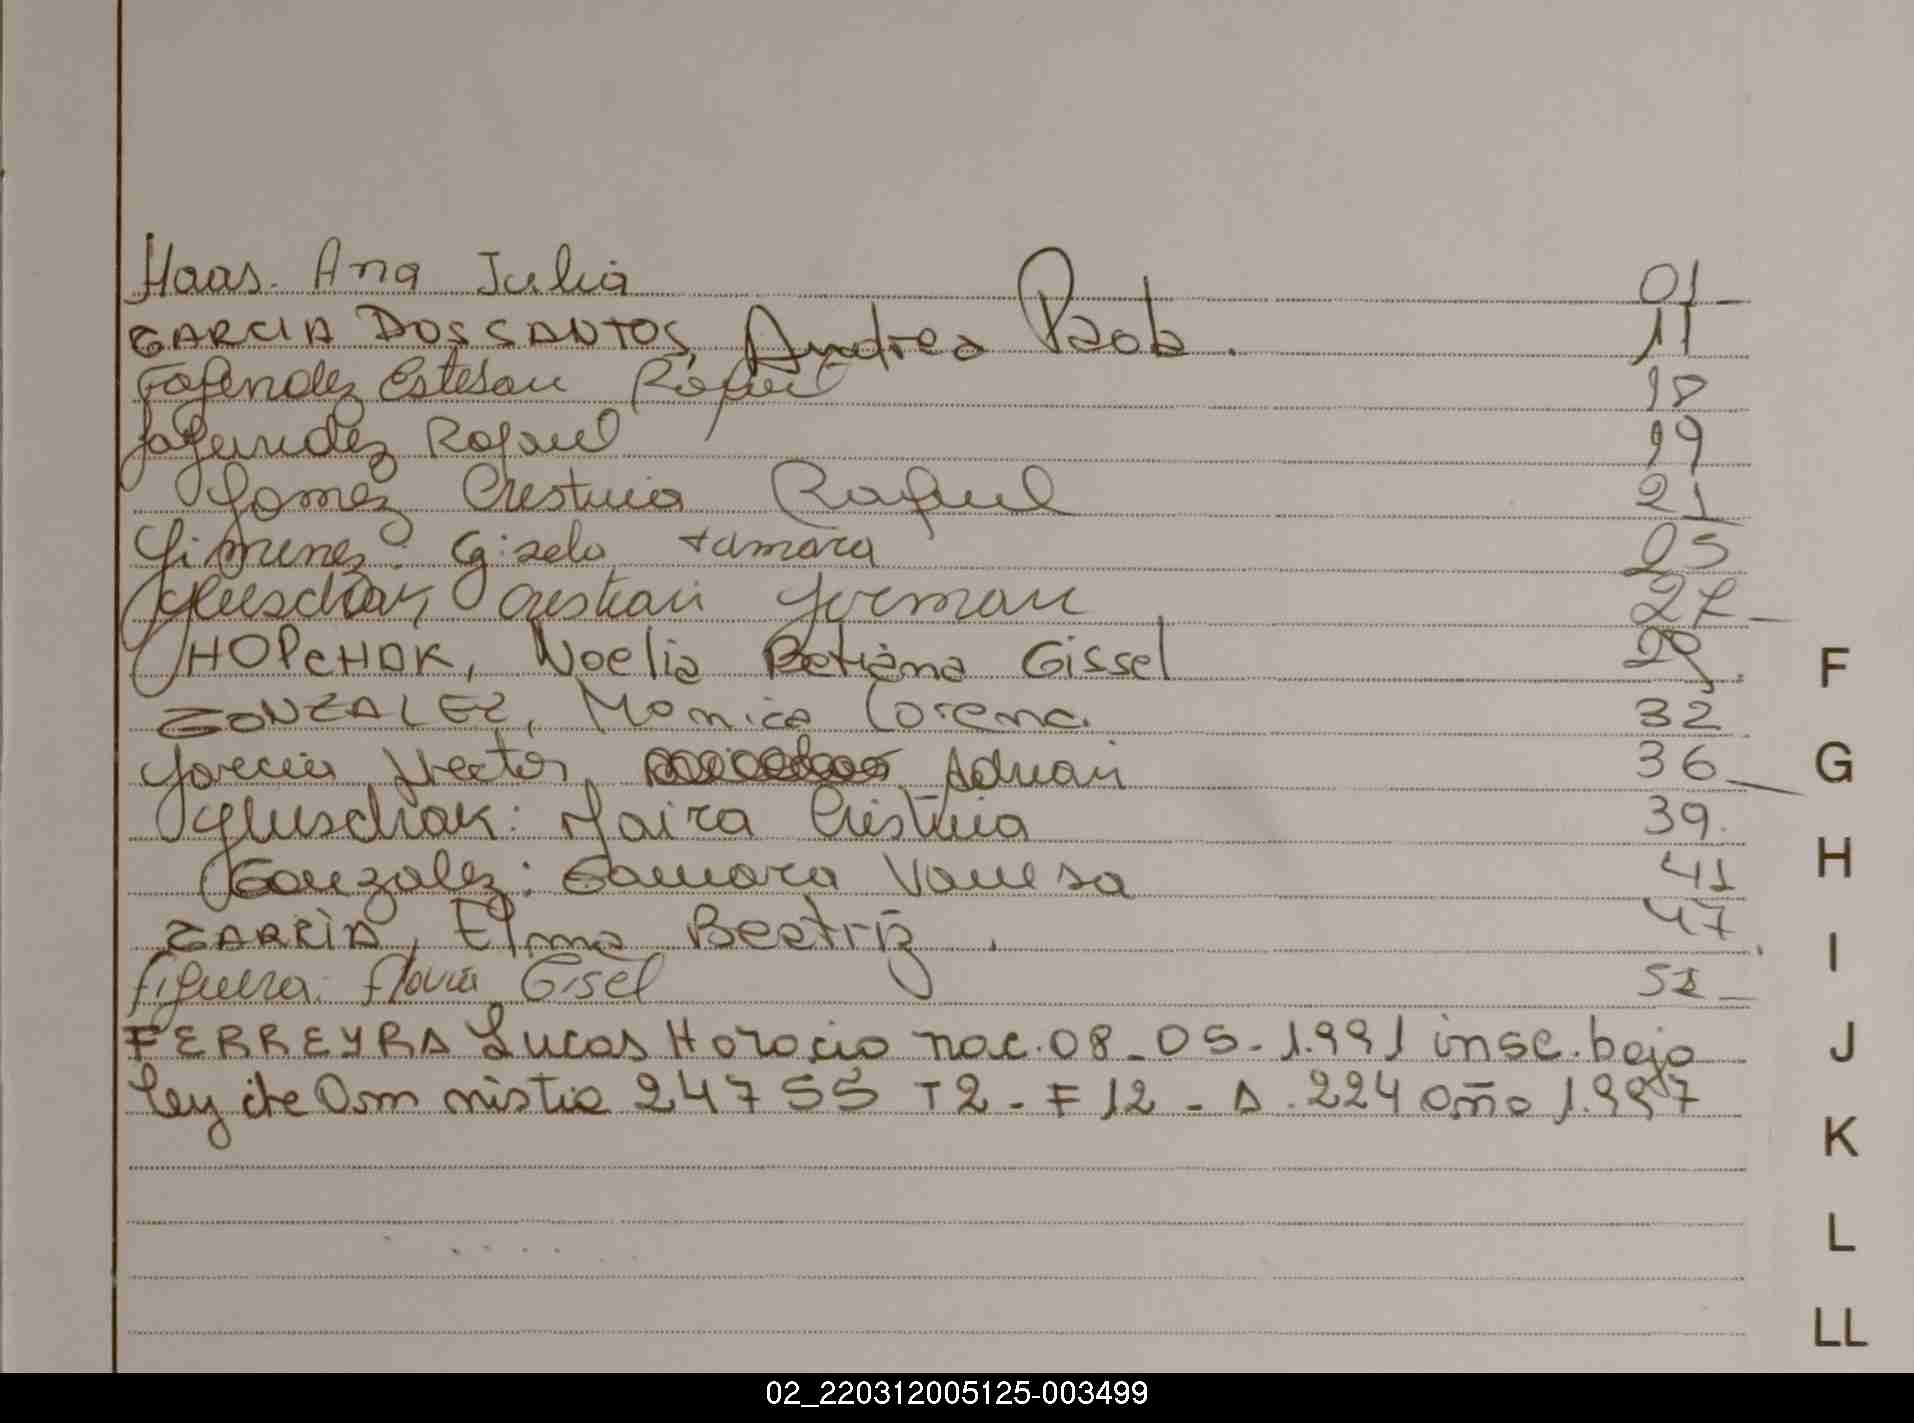 Haas. Ana Julia 01
GARCIA DOS SANTOS, Andrea Paola. 11
Fagendez Esteban Rafael 18
Fagendez Rafael 19
Gomez Cristina Raquel 21
Gimenez: Gisela tamara 25
Gluschak Cristian German 27
HOPCHAK, Noelia Betiana Gissel 29
GONZALEZ, Monica Lorena. 32
Garcia Hector Adrian 36
Gluschak: Maira Cristina 39.
Gonzalez: Tamara Vanesa 41
GARCÌA, Elma Beatriz. 47
figueira: flavia Gisel 52
FERREYRA Lucas Horacio nac. 08-05-1.991 insc. bajo
ley de Amnistia 24755 T2-F12-A.224 año 1.997
F
G
H
I
J
K
L
LL
02_220312005125-003499